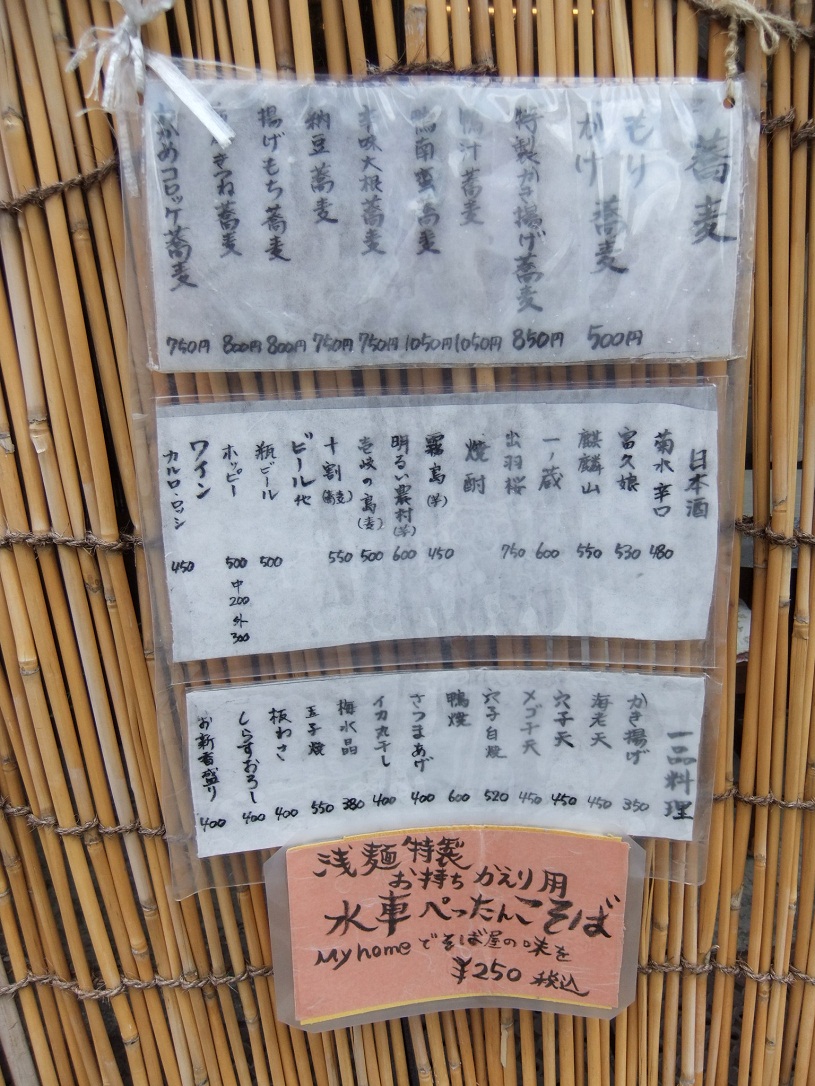 蕎麦
もり
かけ 蕎麦 500円
特製かき揚げ蕎麦 850円
鴨汁蕎麦 1050円
鴨南蛮蕎麦 1050円
辛味大根蕎麦 750円
納豆蕎麦 750円
揚げもち蕎麦 800円
きつね蕎麦 800円
わかめコロッケ蕎麦 750円
日本酒
菊水 辛口 480
富久娘 530
麒麟山 550
一ノ蔵 600
出羽桜 750
焼酎
霧島(芋) 450
明るい農村(芋) 600
壱岐の島(麦) 500
十割(蕎麦) 550
ビール他
瓶ビール 500
ホッピー 500 中200 外300
ワイン
カルロ・ロッシ 450
一品料理
かき揚げ 350
海老天 450
穴子天 450
メゴチ天 450
穴子白焼 520
鴨焼 600
さつまあげ 400
イカ丸干し 400
梅水晶 380
玉子焼 550
板わさ 400
しらすおろし 400
お新香盛り 400
浅麺特製
お持ちかえり用
水車ぺったんこそば
My homeでそば屋の味を
¥250 税込